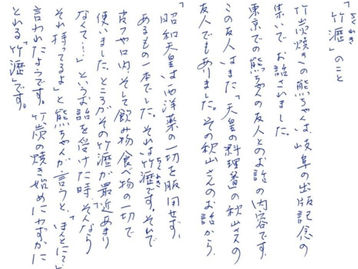 「竹瀝」のこと
ちくれき
竹炭焼きの熊ちゃんは、岐阜の出版記念の
集いでお話されました。
東京での熊ちゃんの友人とのお話の内容です。
この友人はまた「天皇の料理番の秋山さんの
友人でもありました。その秋山さんのお話から、
「昭和天皇は西洋薬の一切を服用せず、
あるもの一本でした。それは竹瀝です。それで
皮フや口内そして飲み物食べ物の一切で
使いました。ところがその竹瀝が最近あまり
なくて…」というお話を受けた時「そんなら
それ持ってるよ」と熊ちゃんが言うと、「ほんとに？」と
言われたようです。竹炭の焼き始めにわずかに
とれる「竹瀝」です。